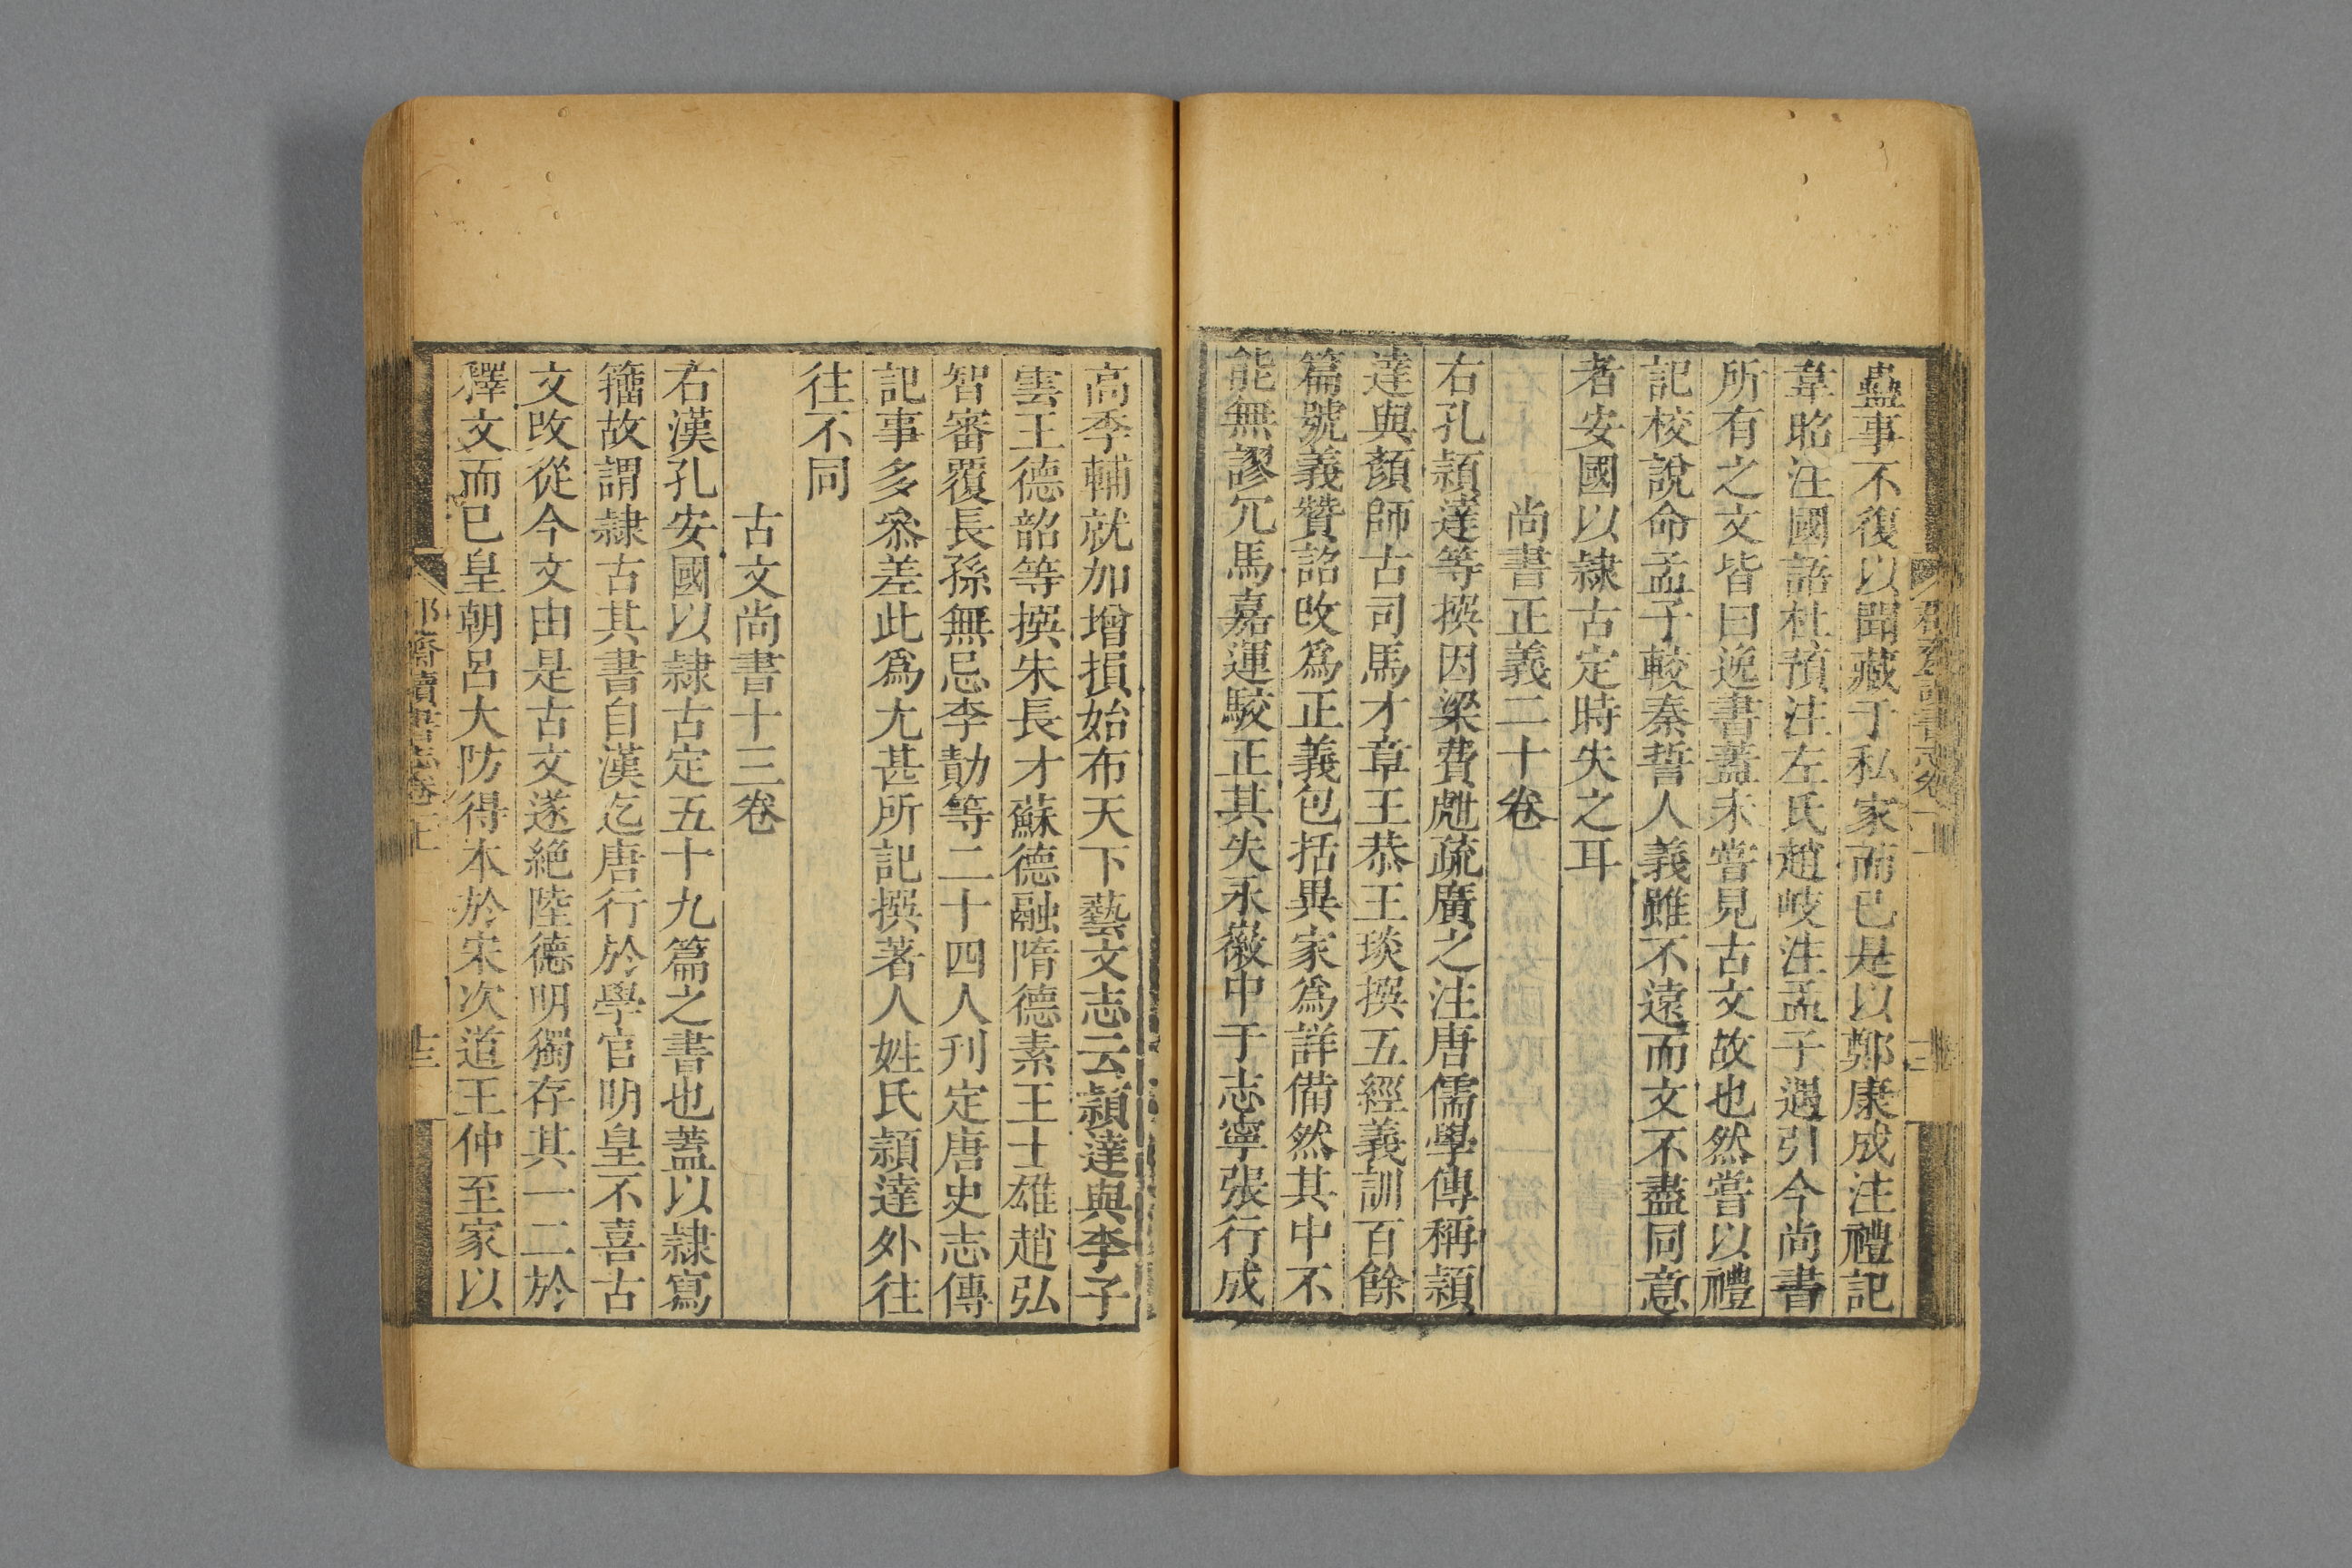 蠱事不復以聞藏于私家而已是以鄭康成注禮記
韋昭注國語杜預注左氏趙岐注孟子遇引今尚書
所有之文皆曰逸書蓋未嘗見古文故也然嘗以禮
記校說命孟子較秦誓人義雖不遠而文不盡同意
者安國以隸古定時失之耳
尚書正義二十卷
右孔穎達等撰因梁費甝疏廣之注唐儒學傳稱穎
達與顏師古司馬才章王恭王琰撰五經義訓百餘
篇號義贊詔改爲正義包括異家爲詳備然其中不
能無謬冗馬嘉運駮正其失永徽中于志寧張行成
高季輔就加增損始布天下藝文志云穎達與李子
雲王德韶等撰朱長才蘇德融隋德素王士雄趙弘
智審覆長孫無忌李勣等二十四人刊定唐史志傳
記事多叅差此爲尤甚所記撰著人姓氏穎達外往
往不同
古文尚書十三卷
右漢孔安國以隸古定五十九篇之書也蓋以隸寫
籀故謂隸古其書自漢迄唐行於學官明皇不喜古
文改從今文由是古文遂絶陸德明獨存其一二於
釋文而已皇朝呂大防得本於宋次道王仲至家以
郡齋讀書志卷一上